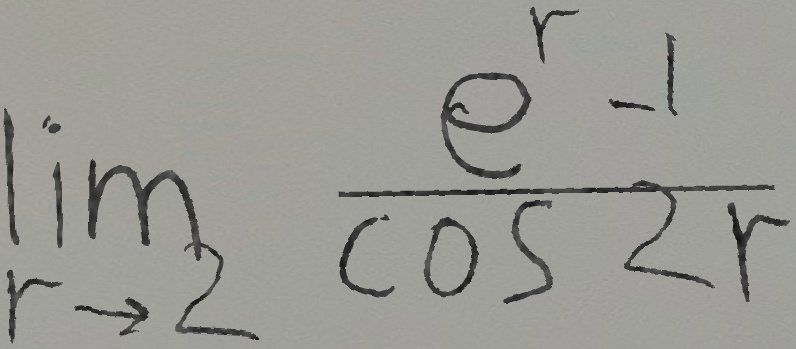 lim_{r \to 2} \frac{e^r - 1}{\cos 2r}